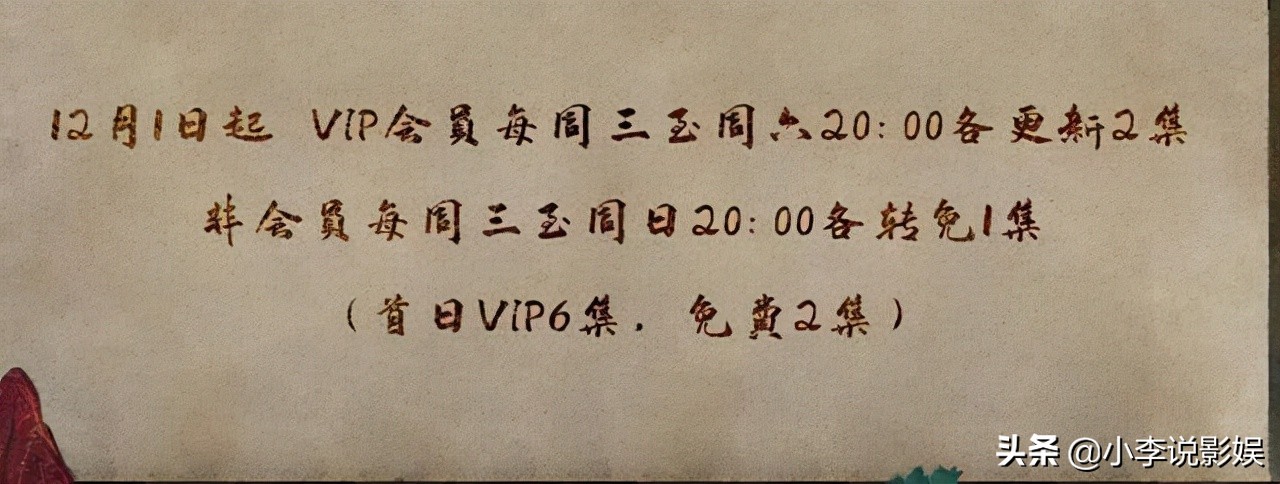 12月1日起 VIP会員每周三至周六20:00各更新2集
非会員每周三至周日20:00各转免1集
（首日VIP6集，免費2集）
头条 @小李说影娱